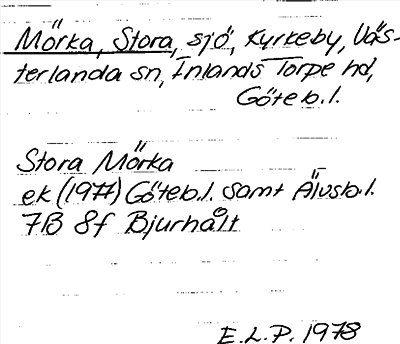 Mörka, Stora, sjö, Kyrkeby, Väs-
terlanda sn, Inlands Torpe hd,
Göteb.l.
Stora Mörka
ek (1977) Göteb.l. samt Älvsb.l.
7B 8f Bjurhålt
E.L.P. 1978